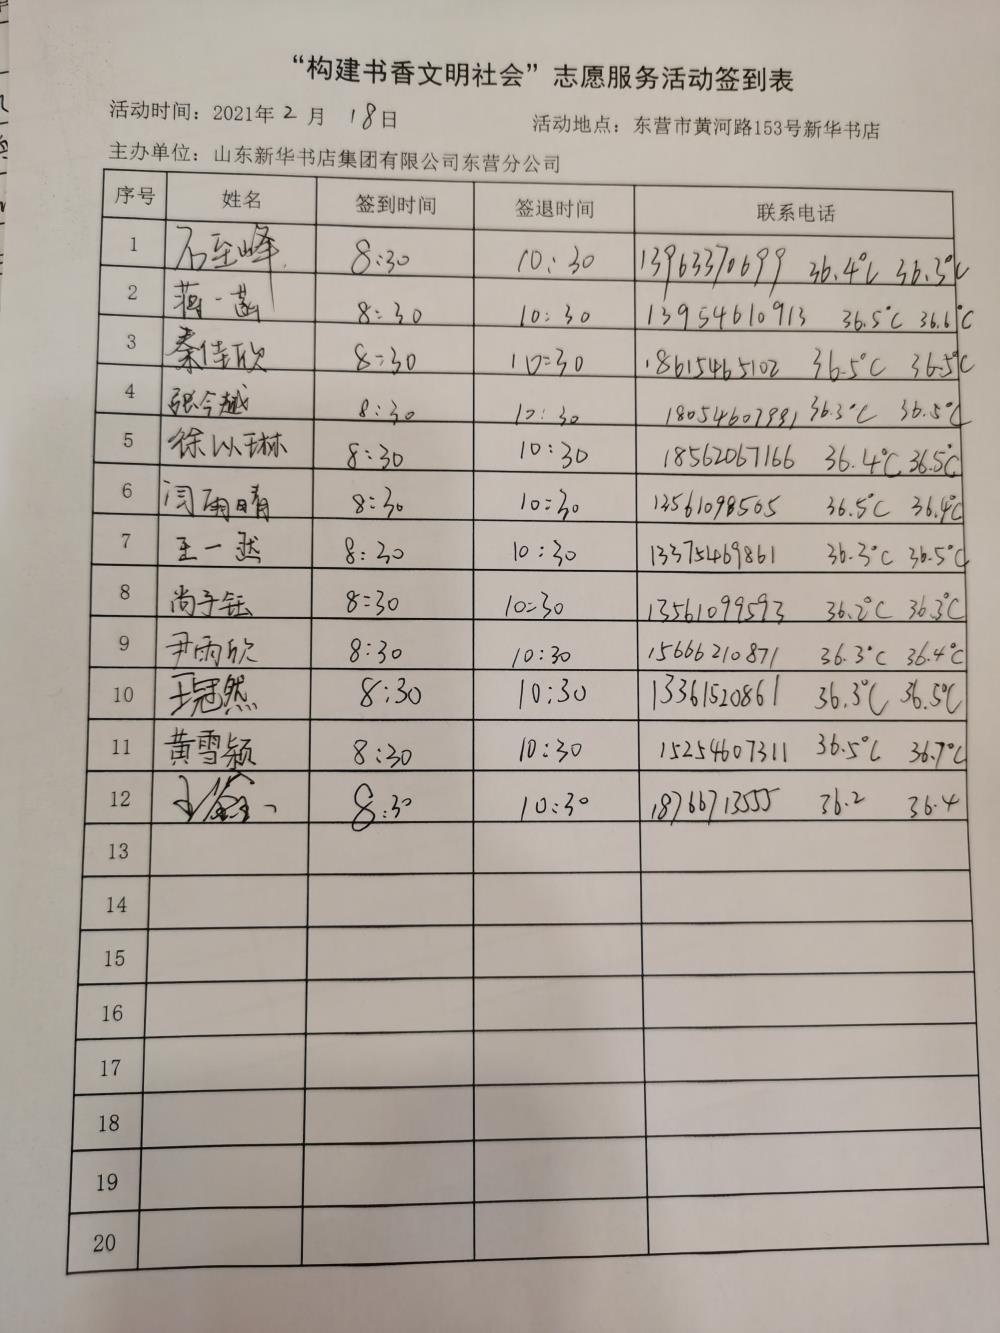 “构建书香文明社会”志愿服务活动签到表
活动时间：2021年2月18日 活动地点：东营市黄河路153号新华书店
主办单位：山东新华书店集团有限公司东营分公司
序号 姓名 签到时间 签退时间 联系电话
1 石至峰 8:30 10:30 13963370699 36.4℃ 36.3℃
2 蒋一菡 8:30 10:30 13954610913 36.5℃ 36.6℃
3 秦佳欣 8:30 10:30 18615465102 36.5℃ 36.5℃
4 张今越 8:30 10:30 36.3℃ 36.5℃
5 徐以琳 8:30 10:30 18562067166 36.4℃ 36.5℃
6 闫雨晴 8:30 10:30 13561098505 36.5℃ 36.4℃
7 王一然 8:30 10:30 13375469861 36.3℃ 36.5℃
8 尚子钰 8:30 10:30 13561099593 36.2℃ 36.3℃
9 尹雨欣 8:30 10:30 15666210871 36.3℃ 36.4℃
10 王冠然 8:30 10:30 13361520861 36.3℃ 36.5℃
11 黄雪颖 8:30 10:30 15254607311 36.5℃ 36.7℃
12 8:30 10:30 18766713555 36.2 36.4
13
14
15
16
17
18
19
20